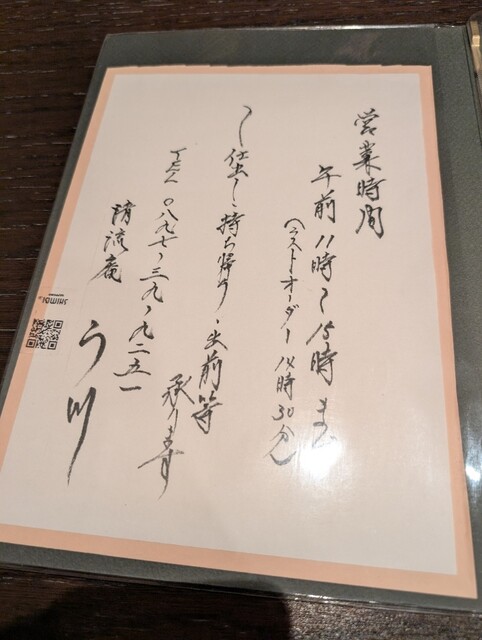 営業時間
午前11時〜15時まで
(ラストオーダー 14時30分)
〜仕出し、持ち帰り、出前等
承ります
TEL 〇八九七ー三九ー九二五一
清流庵
う川
SHIMOI